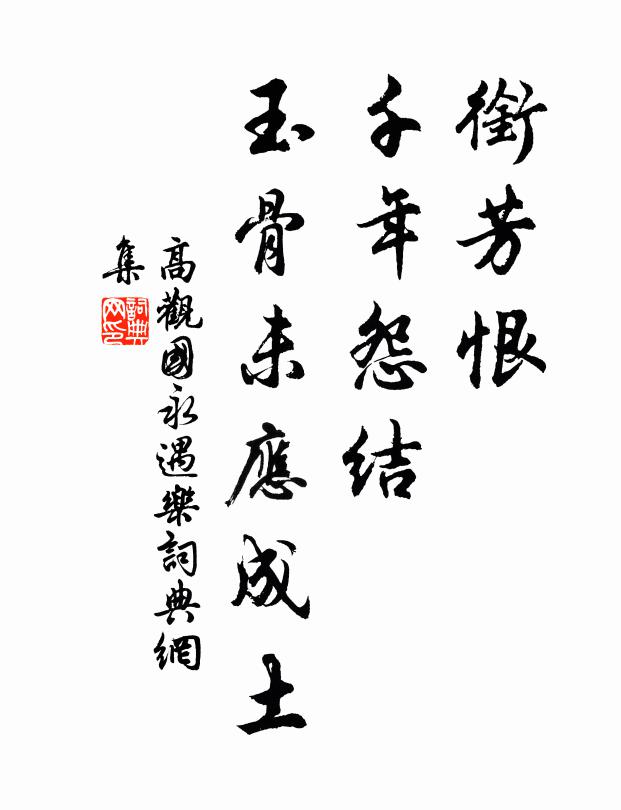 銜芳恨
千年怨結
玉骨未應成土
高觀國永遇樂詞典網
集
詞典
网印